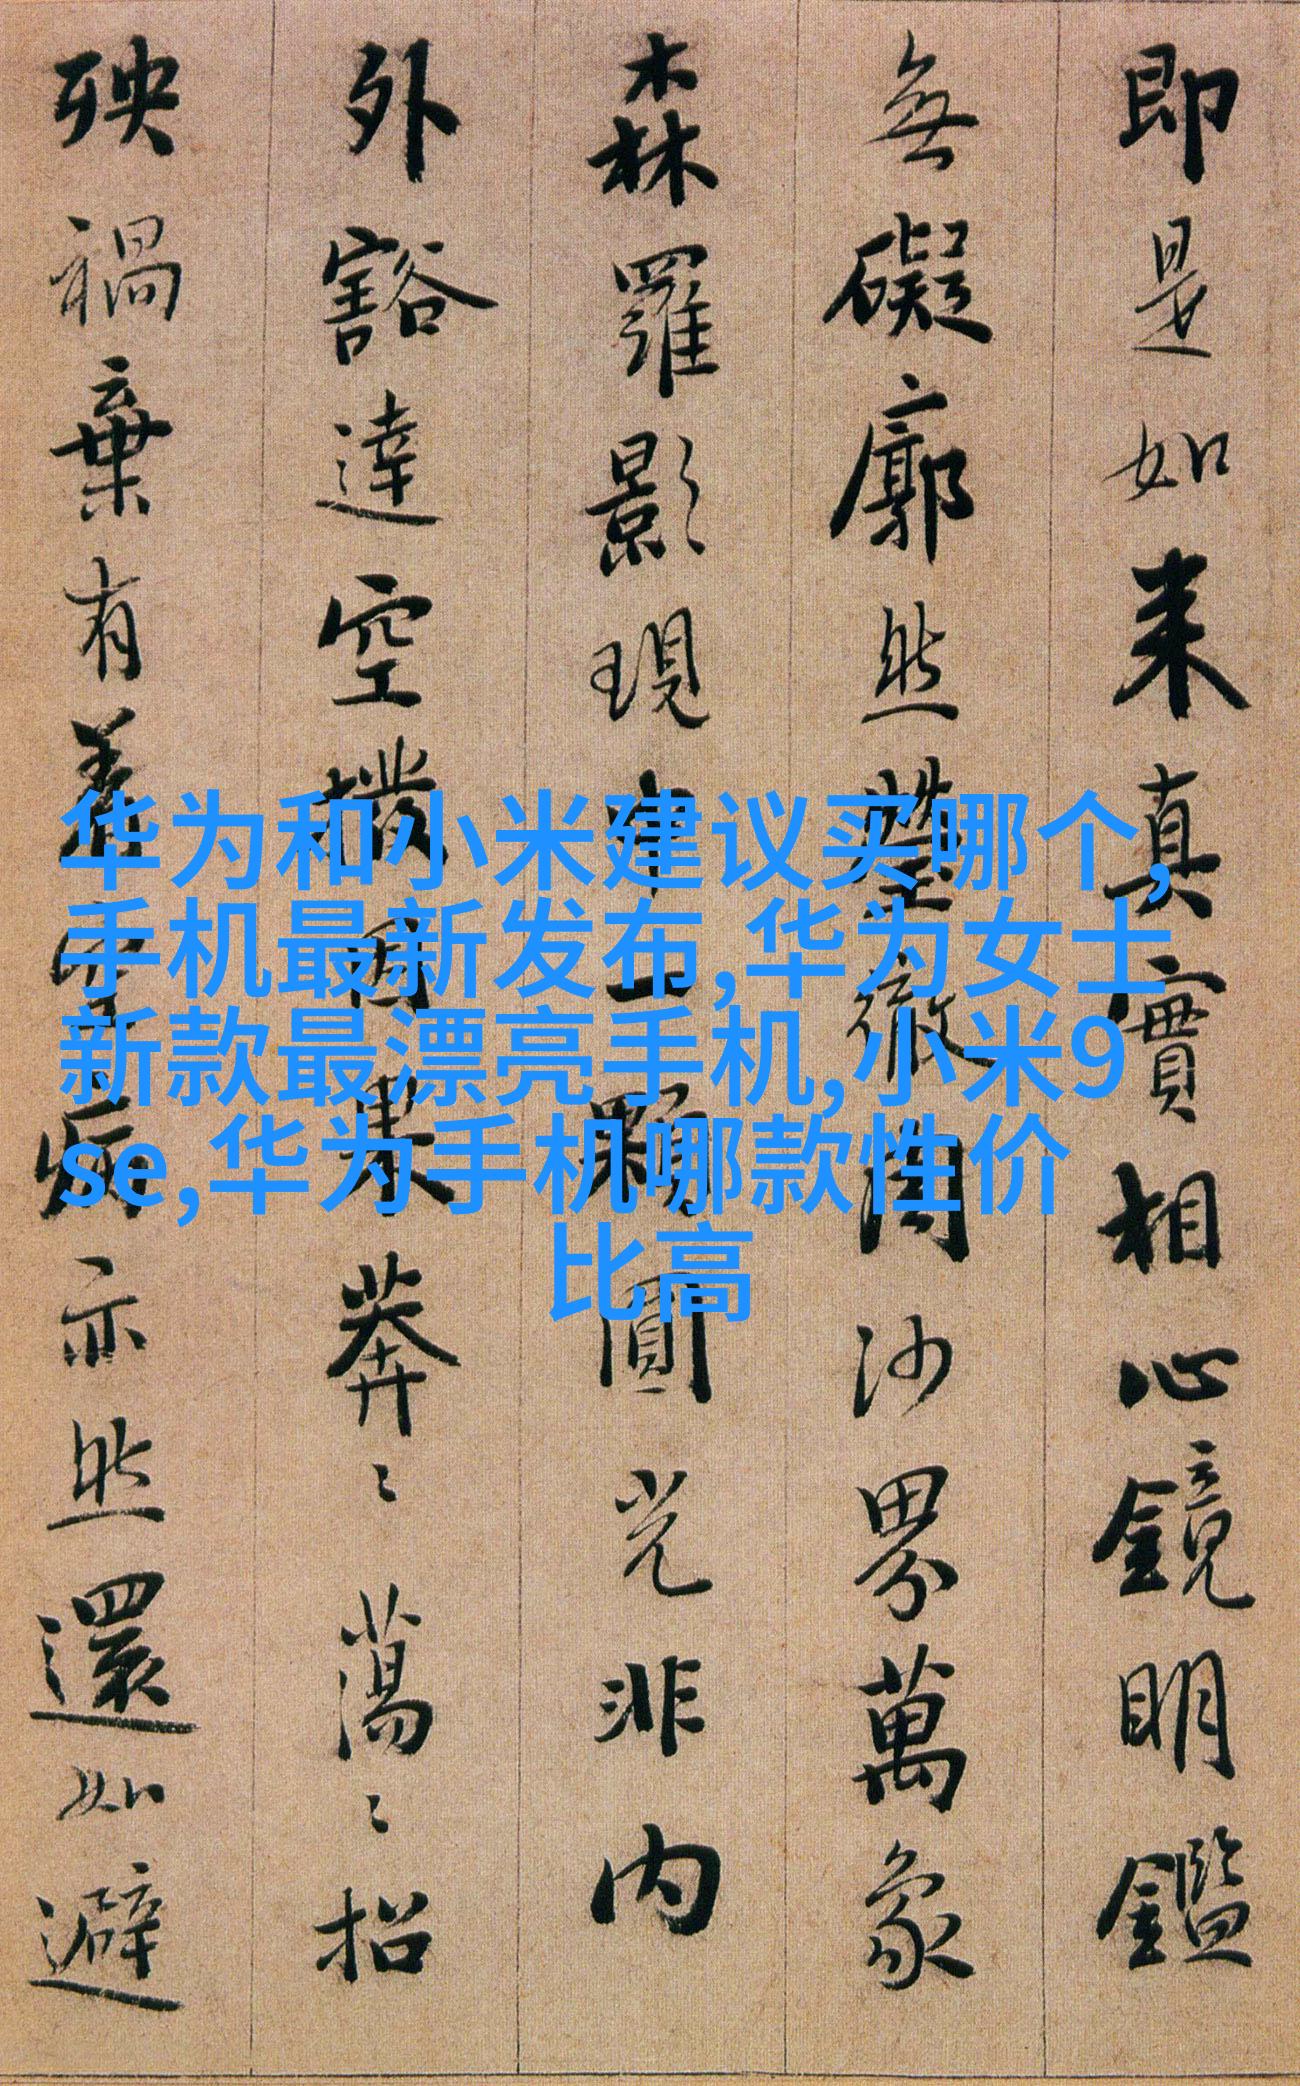 即是如来真實相心鏡明鑑
無礙廓然瑩徹周沙界萬象
森羅影現中一顆圓光非内
外豁達空撥因果莽〻蕩〻招
殃禍棄有著空病亦然還如避
华为和小米建议买哪个,
手机最新发布,华为女士
新款最漂亮手机,小米9
se,华为手机哪款性价
比高